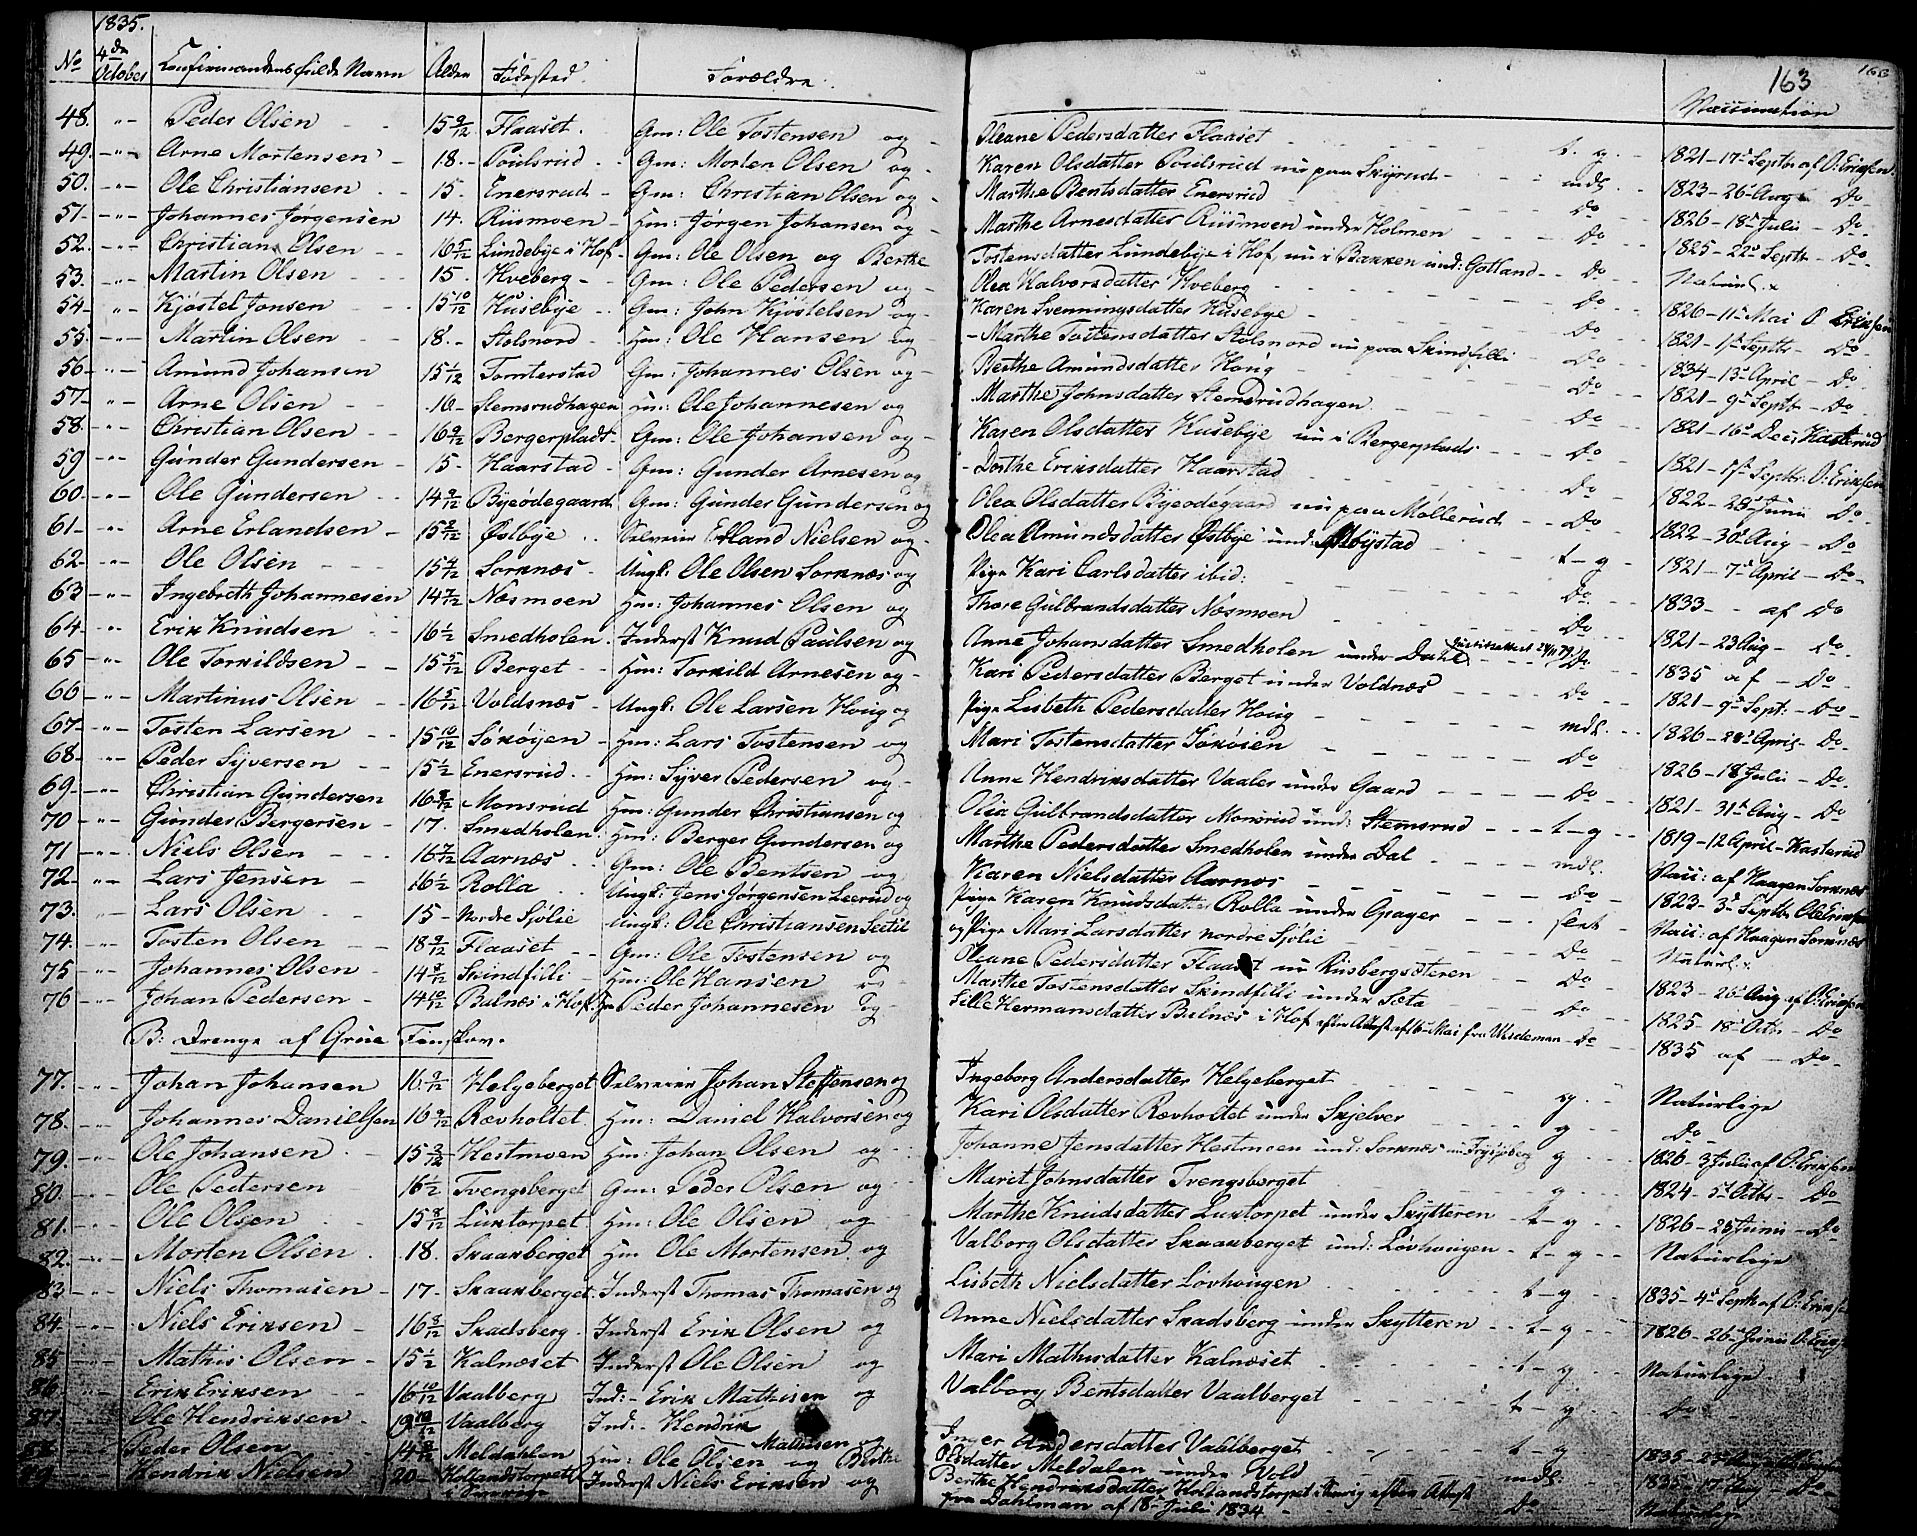 1835.
163
163
No 4de October Confirmandens fulde Navn Alder Födested. Forældre. Vaccination
48. -"- Peder Olsen 15 9/12 Flaaset. Gm: Ole Tostensen og Oleane Pedersdatter Flaaset t. g. 1821-17d Septbr af O: Eriksen
49. -"- Arne Mortensen 18. Poulsrud Gm: Morten Olsen og Karen Olsdatter Poulsrud nu paa Skÿrud mdl. 1823-26d Aug Do
50. -"- Ole Christiansen 15. Enersrud Gm: Christian Olsen og Marthe Bentsdatter Enersrud Do 1826-18d Julii Do
51 -"- Johannes Jörgensen 14. Riismoen Hm: Jörgen Johansen og Marthe Arnesdatter Riismoen under Holmen Do 1825-22d Septb Do
52. -"- Christian Olsen 16 Lundebÿe i Hof Gm: Ole Olsen og Berthe Tostensdatter Lundebÿe i Hof, nu i Bakken und: Gotland Do Naturl.
53. -"- Martin Olsen 15. Hveberg Gm: Ole Pedersen og Olea Halvorsdatter Hveberg Do 1826-11d Mai O Eriksen
54 -"- Kjöstel Jonsen 15 10/12 Husebÿe Gm: John Kjöstelsen og Karen Svenningsdatter Husebÿe Do 1821 Septb Do
55. -"- Martin Olsen 18. Stolsnord Hm: Ole Hansen og Marthe Tostensdatter Stolsnord nu paa Skindfilli Do 1834-13d April Do
56 -"- Amund Johansen 15 Tomterstad Gm: Johannes Olsen og Berthe Amundsdatter Houg Do 1821-9d Septb Do
57 -"- Arne Olsen 16 Stemsrudhagen Hm: Ole Johannesen og Marthe Johnsdatter Stemsrudhagen Do 1821-16d Decr Kasterud
58 -"- Christian Olsen 16 9/12 Bergerplads Gm: Ole Johansen og Karen Olsdatter Husebÿe nu i Bergerplads Do 1821 Septbr O: Eriksen
59 -"- Gunder Gundersen 15 Haarstad Gm: Gunder Arnesen og Dorthe Eriksdatter Haarstad Do 1822 Junii Do
60 -"- Ole Gundersen 14 9/12 Bÿeödegaard Gm: Gunder Gundersen og Olea Olsdatter Bÿeodegaard nu paa Möllerud Do 1822-30d Aug Do
61 -"- Arne Erlandsen 15 8/12 Östbÿe Selveier Erland Nielsen og Olea Amundsdatter Östbÿe und: t-g 1821-7d April Do
62 -"- Ole Olsen 15 4/12 Sorknæs Ungk: Ole Olsen Sorknæs og Pige Kari Carlsdatter ibid: Do 1833 af Do
63 -"- Ingebreth Johannesen 14 7/12 Næsmoen Hm: Johannes Olsen og Thore Gulbrandsdatter Næsmoen Do 1821-23 Aug Do
64 -"- Erik Knudsen 16 1/2 Smedholen Inderst Knud Paulsen og Anne Johansdatter Smedholen under Dahl Do 1835 af Do
65 -"- Ole Torkildsen 15 5/12 Berget Hm: Torkild Arnesen og Kari Pedersdatter Berget under Voldnæs Do 1821-9d Sept: Do
66 -"- Martinus Olsen 16 5/12 Voldsnæs Ungk: Ole Larsen Houg og Pige Lisbeth Pedersdatter Houg mdl. 1826 April Do
67 -"- Tosten Larsen 15 10/12 Sönöÿen Hm: Lars Tostensen og Mari Tostensdatter Sönöien Do 1826-18 Julii Do
68 -"- Peder Sÿversen 15 1/2 Enersrud Hm: Sÿver Pedersen og Anne Hendriksdatter Vaaler under Gaard Do 1821-31d Aug Do
69 -"- Christian Gundersen 16 8/12 Monsrud Hm: Gunder Christiansen og Olea Gulbrandsdatter Monsrud und: Stemsrud t-g 1819-12 April Kasterud
70 -"- Gunder Bergersen 17. Smedholen Hm: Berger Gundersen og Marthe Pedersdatter Smedholen under Dal mdl. Vacc: af Haagen Sorknæs
71 -"- Niels Olsen 16 7/12 Aarnæs Gm: Ole Bentsen og Karen Nielsdatter Aarnæs Do 1823-3d Septb Ole Eriksen
72 -"- Lars Jensen 16 1/2 Rolla Ungk: Jens Jörgensen Leerud og Pige Karen Knudsdatter Rolla under Opager slet Vacc: af Haagen Sorknæs
73. -"- Lars Olsen 15 Nordre Sjölie Ungk: Ole Christiansen og Pige Mari Larsdatter nordre Sjölie Do Naturl.
74. -"- Tosten Olsen 18 9/12 Flaaset Gm: Ole Tostensen og Oleane Pedersdatter Flaaset nu Riisbergsæteren Do 1823-26d Aug af O: Eriksen
75 -"- Johannes Olsen 14 8/12 Skindfilli Hm: Ole Hansen og Marthe Tostensdatter Skindfilli under Sæta Do 1825-18 Octb Do
76 -"- Johan Pedersen 14 10/12 Bulnæs i Hof. Peder Johannesen og Sille Hermansdatter Bulnæs i Hof efter Attest af Mai fra Do 1835 af Do
B: Drenge af Grue Finskov.
77. -"- Johan Johansen 16 9/12 Helgeberget Selveier Johan Steffensen og Ingeborg Andersdatter Helgeberget g Naturlige
78. -"- Johannes Danielsen 16 9/12 Rævholtet Hm: Daniel Halvorsen og Kari Olsdatter Rævholtet under Skjelver g Do
79. -"- Ole Johansen 15 3/12 Hestmoen Hm: Johan Olsen og Johanne Jensdatter Hestmoen und: Sorknæs g 1826-3 Julii af O: Eriksen
80. -"- Ole Pedersen 16 1/2 Tvengsberget Gm: Peder Olsen og Marit Johnsdatter Tvengsberget g 1824-5d Octbr Do
81. -"- Ole Olsen 15 8/12 Luxtorpet Hm: Ole Olsen og Marthe Knudsdatter Luxtorpet under Skÿtteren t-g 1826 Junii Do
82. -"- Morten Olsen 18. Skaarberget Hm Ole Mortensen og Valborg Olsdatter Skaarberget und: Lövhougen t-g Naturlige
83 -"- Niels Thomasen 17 Skaarberget Inderst Thomas Thomasen og Lisbeth Nielsdatter Lövhougen t-g 1835-4d Septb af O: Eriksen
84. -"- Niels Eriksen 16 8/12 Skadsberg Inderst Erik Olsen og Anne Nielsdatter Skadsberg under Skÿtteren t-g 1826-26d Junii
85 -"- Mathis Olsen 15 1/2 Kalnæset Inderst Ole Olsen og Mari Mathisdatter Kalnæset t-g Naturlige
86 -"- Erik Eriksen 16 10/12 Vaalberg Ind: Erik Mathisen og Valborg Bentsdatter Vaalberget t-g Do
87. -"- Ole Hendriksen 19 10/12 Vaalberg Ind: Hendrik Mathisen og Inger Andersdatter Vaalberget t-g 1835
88 -"- Peder Olsen 14 8/12 Meldahlen Hm: Ole Olsen og Berthe Olsdatter Meldalen under Vold mdl. 1835-17d Aug Do
89 -"- Hendrik Nielsen 20 Hollandstorpet Inderst Niels Eriksen og Berthe Hendriksdatter Hollandstorpet i Sverrig efter Attest
i Sverrige fra Dahlman af 18d Julii 1834 Do Naturlige